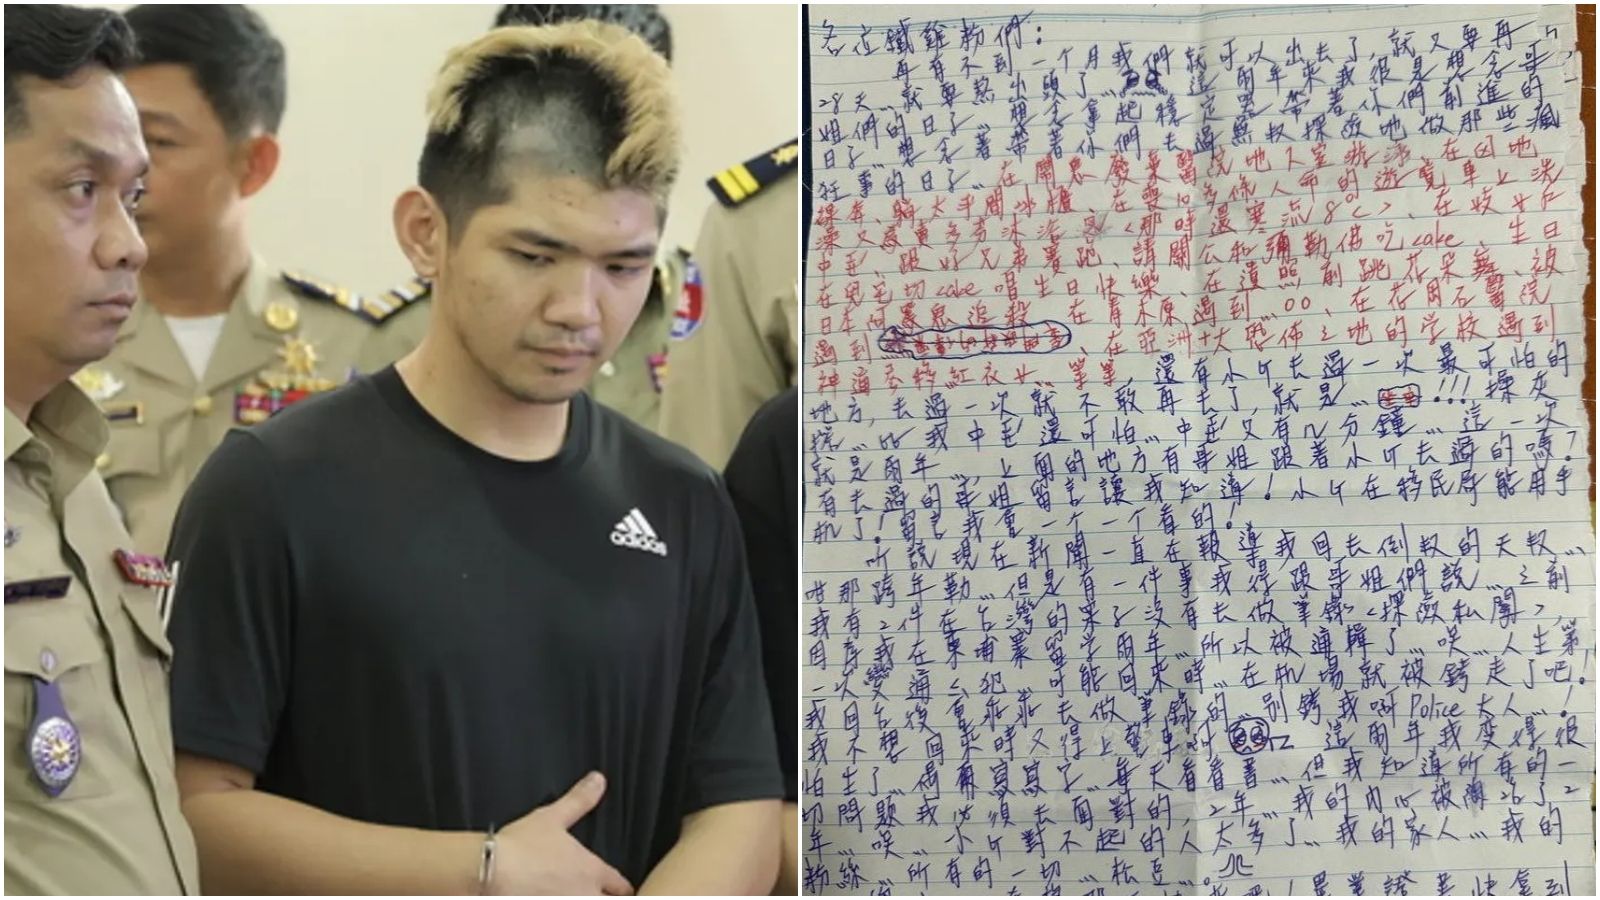 adidas
各位鐵雞粉們：
再有不到一个月我們就可以出去了，就又要再
28天…就要熬出頭了…這兩年來我很是想念哥
姐們的日子…想念拿起穩定器帶著你們前進的
日子…想念著帶著你們去過無數探險地做那些瘋
狂事的日子…在鬧鬼廢棄醫院地下室游泳、在凶地
探奔、躺太平間冰櫃、在 10多條人命的遊覽車上洗
澡又 <那時還寒流8℃>、在
中邪、跟好兄弟賽跑、請關公和彌勒佛吃cake、生日
在兇宅切cake唱生日快樂、在遺照前跳花朵舞、被
日本阿 追殺、在青木原遇到…00、在花 石醫院
遇到 、在亞洲十大恐佈之地的学校遇到
神 紅衣女…等等，還有小YT去過一次最可怕的
地方，去過一次就不敢再去了，就是… !!!探灰
…比我中邪還可怕…中邪又有几分鐘…這一次
就是兩年…，上面的地方有哥姐跟著小YT去過的嗎？
有去過的哥姐留言讓我知道！小YT在移民局能用手
机了！留言我會一个一个看的！
听說現在新聞一直在報導我回去倒數的天數…
咁那跨年勒…但是有一件事我得跟哥姐們說…之前
我有2件在台灣的案子沒有去做筆錄<探險私闖>，
因為我在柬埔寨留学兩年…所以被通緝了…唉…人生第
一次變通 犯…可能回來時…在机場就被銬走了吧！
我回台後會乖乖去做筆錄的…別銬我啊Police大人…！
我不想回來時又得上警車啊 這兩年我变得很
怕生了…偶爾寫寫字…每天看看書…但我知道所有的一
切問題我必須去面對的，2年…我的内心被 了2
年…唉…小YT對不起的人太多了…我的家人…我的
粉絲…所有的一切…松豆…。
畢業證 快拿到